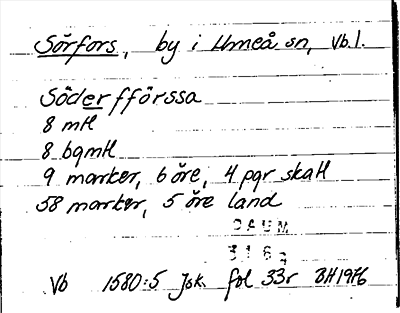 Sörfors, by i Umeå sn, Vb.l.
Söderfförssa
8 mtl
8 bqmtl
9 marker, 6 öre, 4 pgr skatt
58 marker, 5 öre land
DAUM
3167
Vb 1580:5 Jsk. fol 33r BH1976